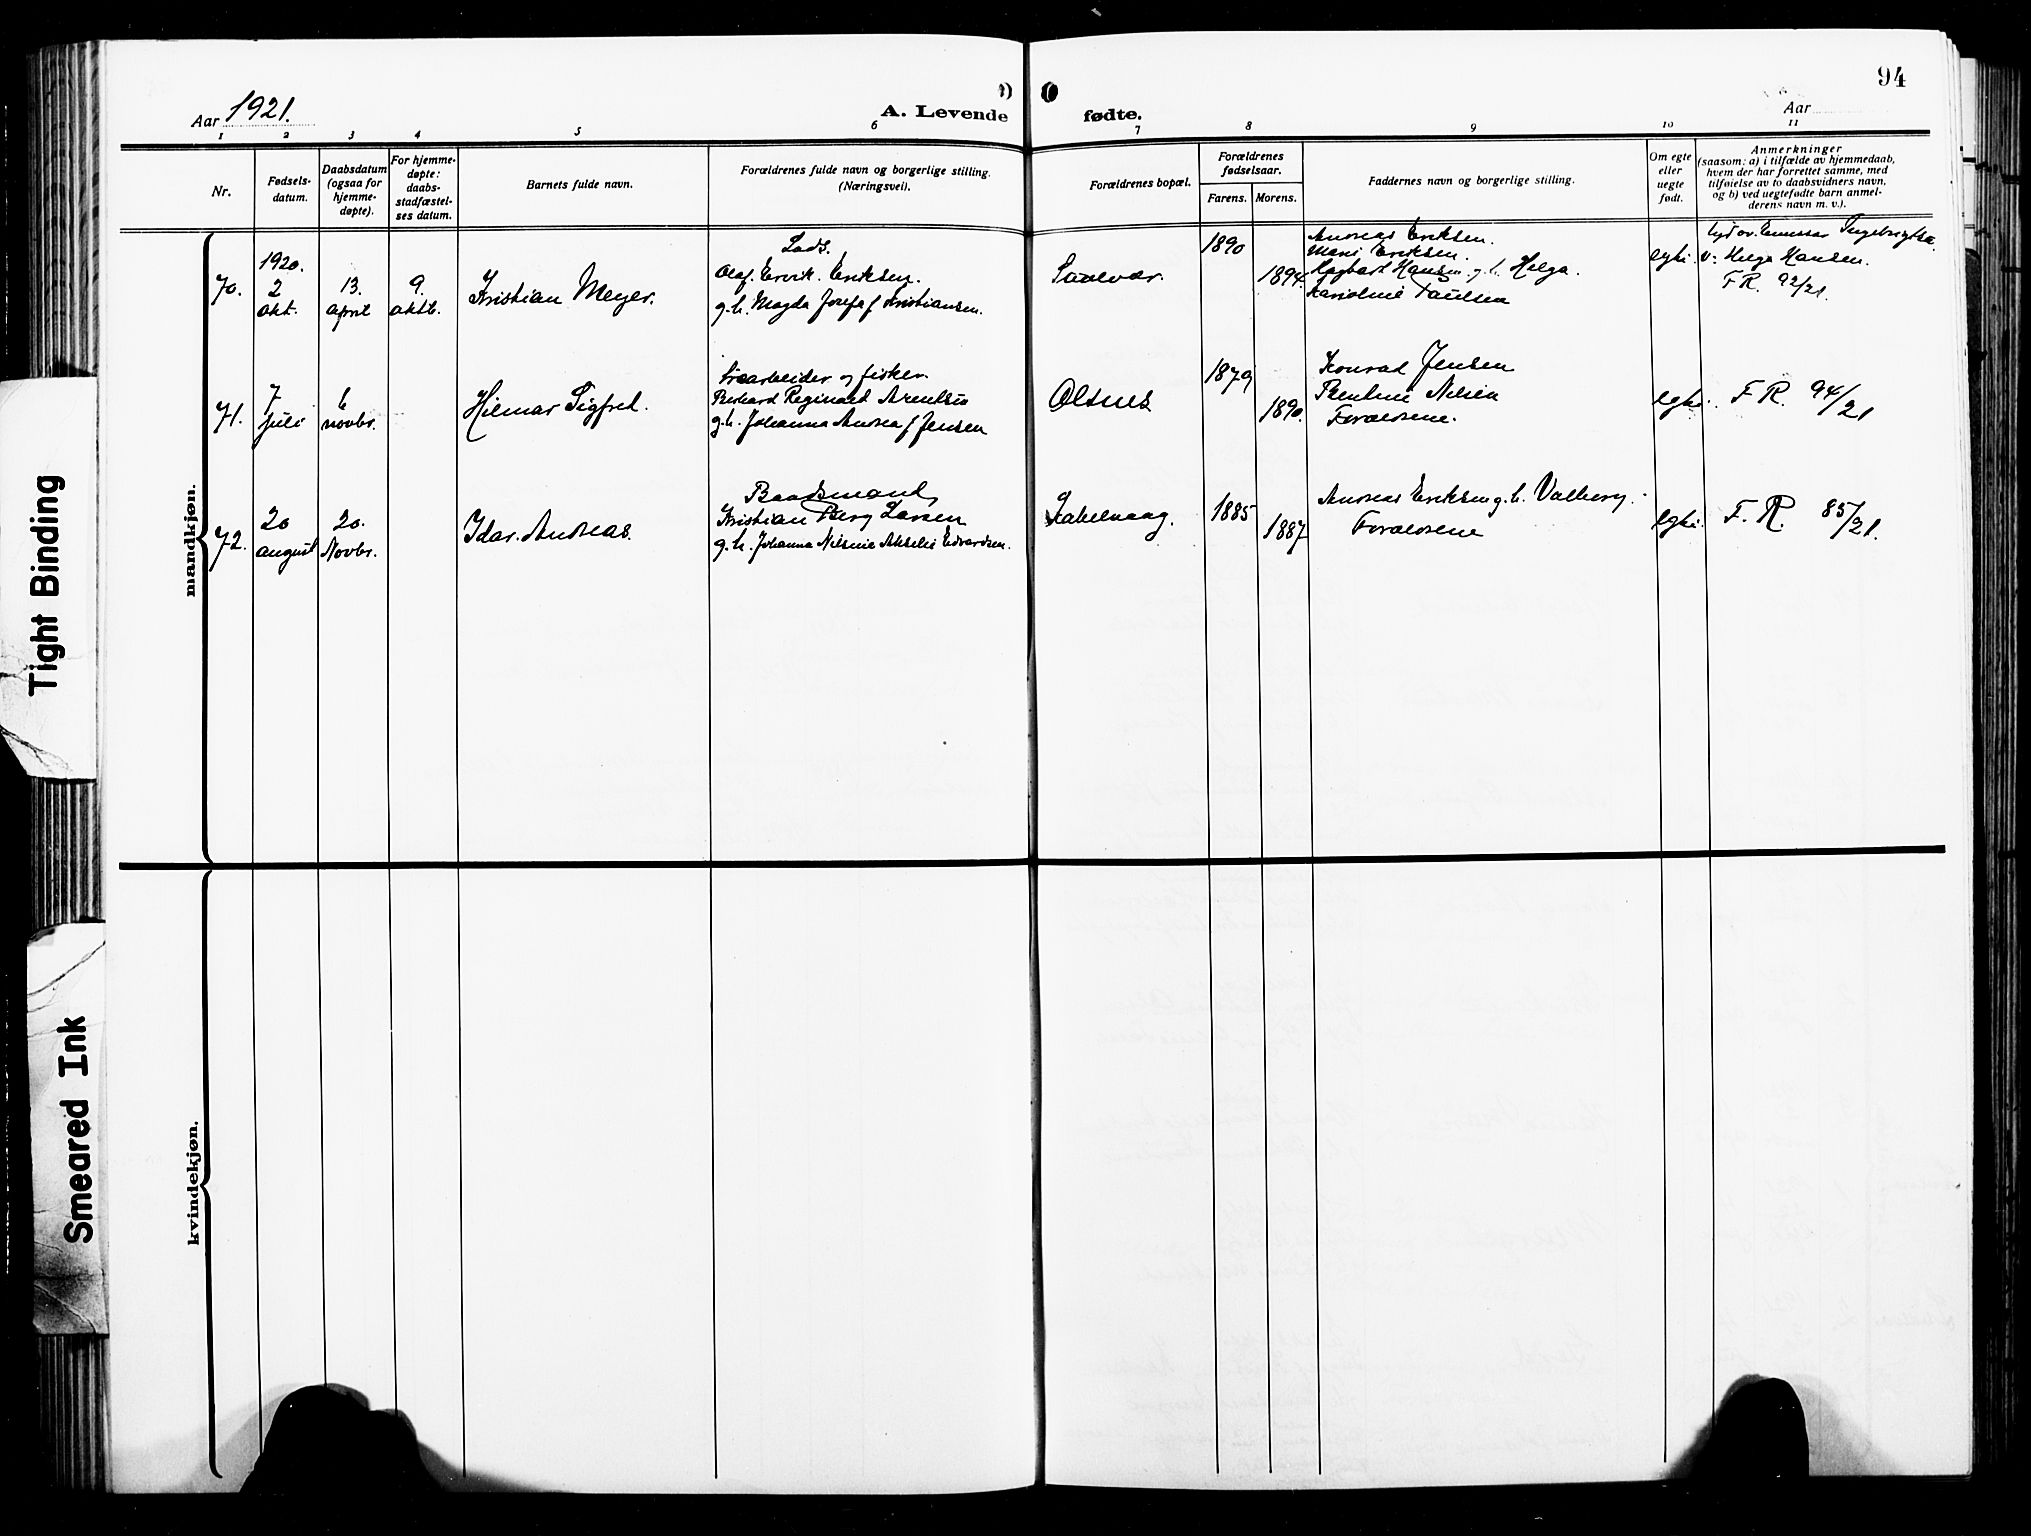 94
Aar 1921.
A. Levende
fødte.
Aar
1 2 3 4 5 6 7 8 9 10 11
Nr.
Fødsels-
datum.
Daabsdatum
(ogsaa for
hjemme-
døpte).
For hjemme-
døpte:
daabs-
stadfæstel-
ses datum.
Barnets fulde navn.
Forældrenes fulde navn og borgerlige stilling.
(Næringsvei).
Forældrenes bopæl.
Forældrenes
fødselsaar.
Farens. Morens.
Faddernes navn og borgerlige stilling.
Om egte
eller
uegte
født.
Anmerkninger
(saasom: a) i tilfælde av hjemmedaab,
hvem der har forrettet samme, med
tilføielse av to daabsvidners navn,
og b) ved uegtefødte barn anmel-
derens navn m. v.).
mandkjøn.
70.
1920.
2
okt.
13.
april
9.
oktb.
Kristian Meyer.
Lods.
Olaf Ervik Eriksen.
g. h. Magda Josefa f Kristiansen.
1890
1894.
Andreas Eriksen.
Marie Eriksen.
Hagbart Hansen g. h. Helga.
Karoline Paulsen
egte
v: Helga Hansen.
F R. 92/21.
71.
7
juli
6
novbr.
Hilmar Sigfred.
arbeider og fisker.
Reginald Arentsen
g. h. Johanna Andrea f Jensen
Olsnes
1879
1890.
Konrad Jensen
Nilsen
Forældrene.
egte.
F R. 94/21
72.
20
august
20.
Novbr.
Idar Andreas.
Baadsmand
Kristian Berg Larsen
g. h. Johanna Nilsine Edvardsen.
1885
1887
Andreas Eriksen g. h. Valborg.
Forældrene
egte.
F. R. 85/21.
kvindekjøn.
Tight Binding
Smeared Ink